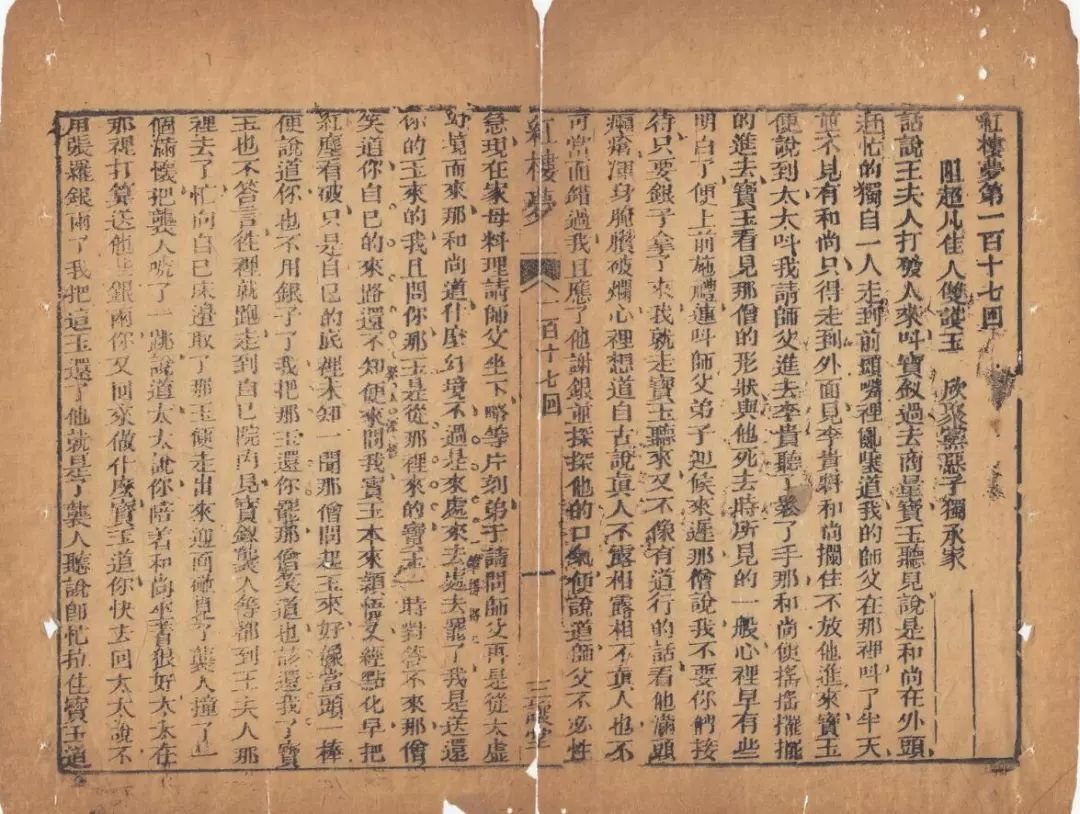 紅樓夢第一百十七回
阻超凡佳人雙護玉　欣聚黨惡子獨承家
話說王夫人打發人來呌寶釵過去商量寶玉聽見說是和尚在外頭
赶忙的獨自一人走到前頭嘴裡亂嚷道我的師父在那裡呌了半天
並不見有和尚只得走到外面見李貴將和尚攔住不放他進來寶玉
便說到太太呌我請師父進去李貴聽了鬆了手那和尚便搖搖擺擺
的進去寶玉看見那僧的形狀與他死去時所見的一般心裡早有些
明白了便上前施禮連呌師父弟子迎候來遲那僧說我不要你們接
待只要銀子拿了來我就走寶玉聽來又不像有道行的話看他滿頭
癩瘡渾身腌臢破爛心裡想道自古說眞人不露相露相不眞人也不
可當面錯過我且應了他謝銀並探探他的口氣便說道師父不必性
紅樓夢　一百十七回　一　三讓堂
急現在家母料理請師父坐下略等片刻弟子請問師父再是從太虛
幻境而來那和尚道什麼幻境不過是來處來去處去罷了我是送還
你的玉來的我且問你那玉是從那裡來的寶玉一時對答不來那僧
笑道你自己的來路還不知便來問我寶玉本來穎悟又經點化早把
紅塵看破只是自己的底裡未知一聞那僧問起玉來好像當頭一棒
便說道你也不用銀子了我把那玉還你罷那僧笑道也該還我了寶
玉也不答言徃裡就跑走到自已院內見寶釵襲人等都到王夫人那
裡去了忙向自已床邊取了那玉便走出來迎面碰見了襲人撞了一
個滿懷把襲人唬了一跳說道太太說你陪着和尚坐着狠好太太在
那裡打算送他些銀兩你又回來做什麼寶玉道你快去回太太說不
用張羅銀兩了我把這玉還了他就是了襲人聽說卽忙拉住寶玉道